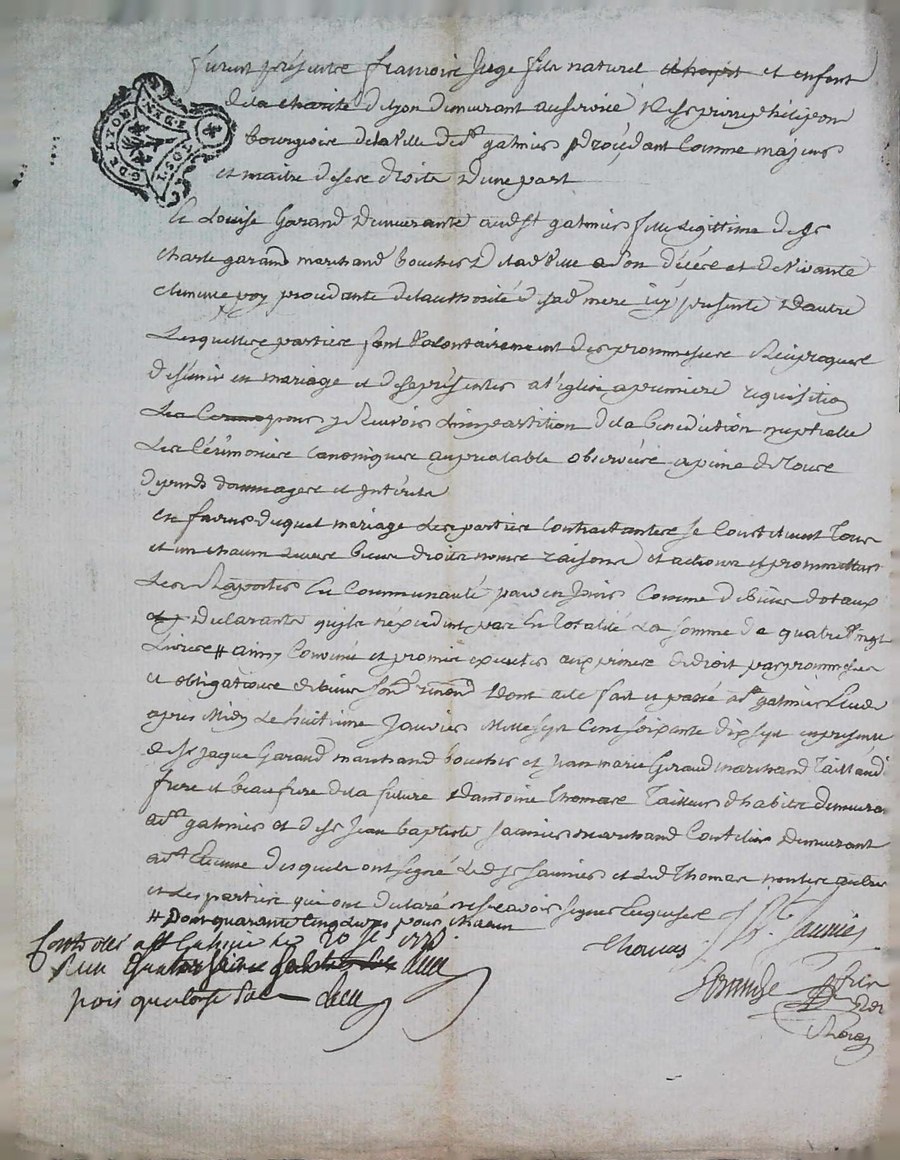 furent présents francois Juge fils naturel et enfant
de la charité de lyon demeurant au service de Sr pierre philipon
bourgeois de la Ville de St galmier procédant comme majeur
et maitre de ses droits d'une part
Et Louise Garand demeurante audt St galmier fille Legittime de Sr
Charle garand marchand boucher de lad Ville a son décés et de Vivante
procedante de lauthorité de sad mere icy présente d'autre
Lesquelles parties sont Volontairement des prommesses Réciproques
de s'unir en mariage et de se présenter a léglise a première requisition
pour y Recevoir L'impartition de la bénédiction nuptialle
Les Cérémonies Canoniques au préalable observées a peine de tous
dépends dommages et Intérêts
en faveur duquel mariage Les parties Contractantes se Constituent tous
et un chacun Leurs biens droits noms raisons et actions et promettent
Les Raporter En Communauté pour en Jouir Comme de biens dotaux
declarants qu'ils n'éxcédent pas En totalité La somme de quatre Vingt
Livres # ainsy Convenu et promis executer aux peines de droit par prommesses
et obligations de biens fond Dont acte fait et passé a St galmier Etude
apres Midy Le huitieme Janvier Mille sept Cent soixante dix sept en présence
de Sr Jaque Garand marchand boucher et Jean marie Giraud marchand taillandier
frere et beaufrere de la future d'antoine thomas tailleur d'habits demeurant
a St galmier et de Sr Jean baptiste Jaunier marchand Coutelier demeurant
a St Etienne desquels ont signé Led Sr Jaunier et Led thomas non les autres
et Les parties qui ont declaré ne scavoir signer Enquises
# Dont quarante cinq Livres pour chacun
thomas J Bte Jaunier
Controllé a St Galmier Le 20 Ja 1777
Reçu
quatorze sols